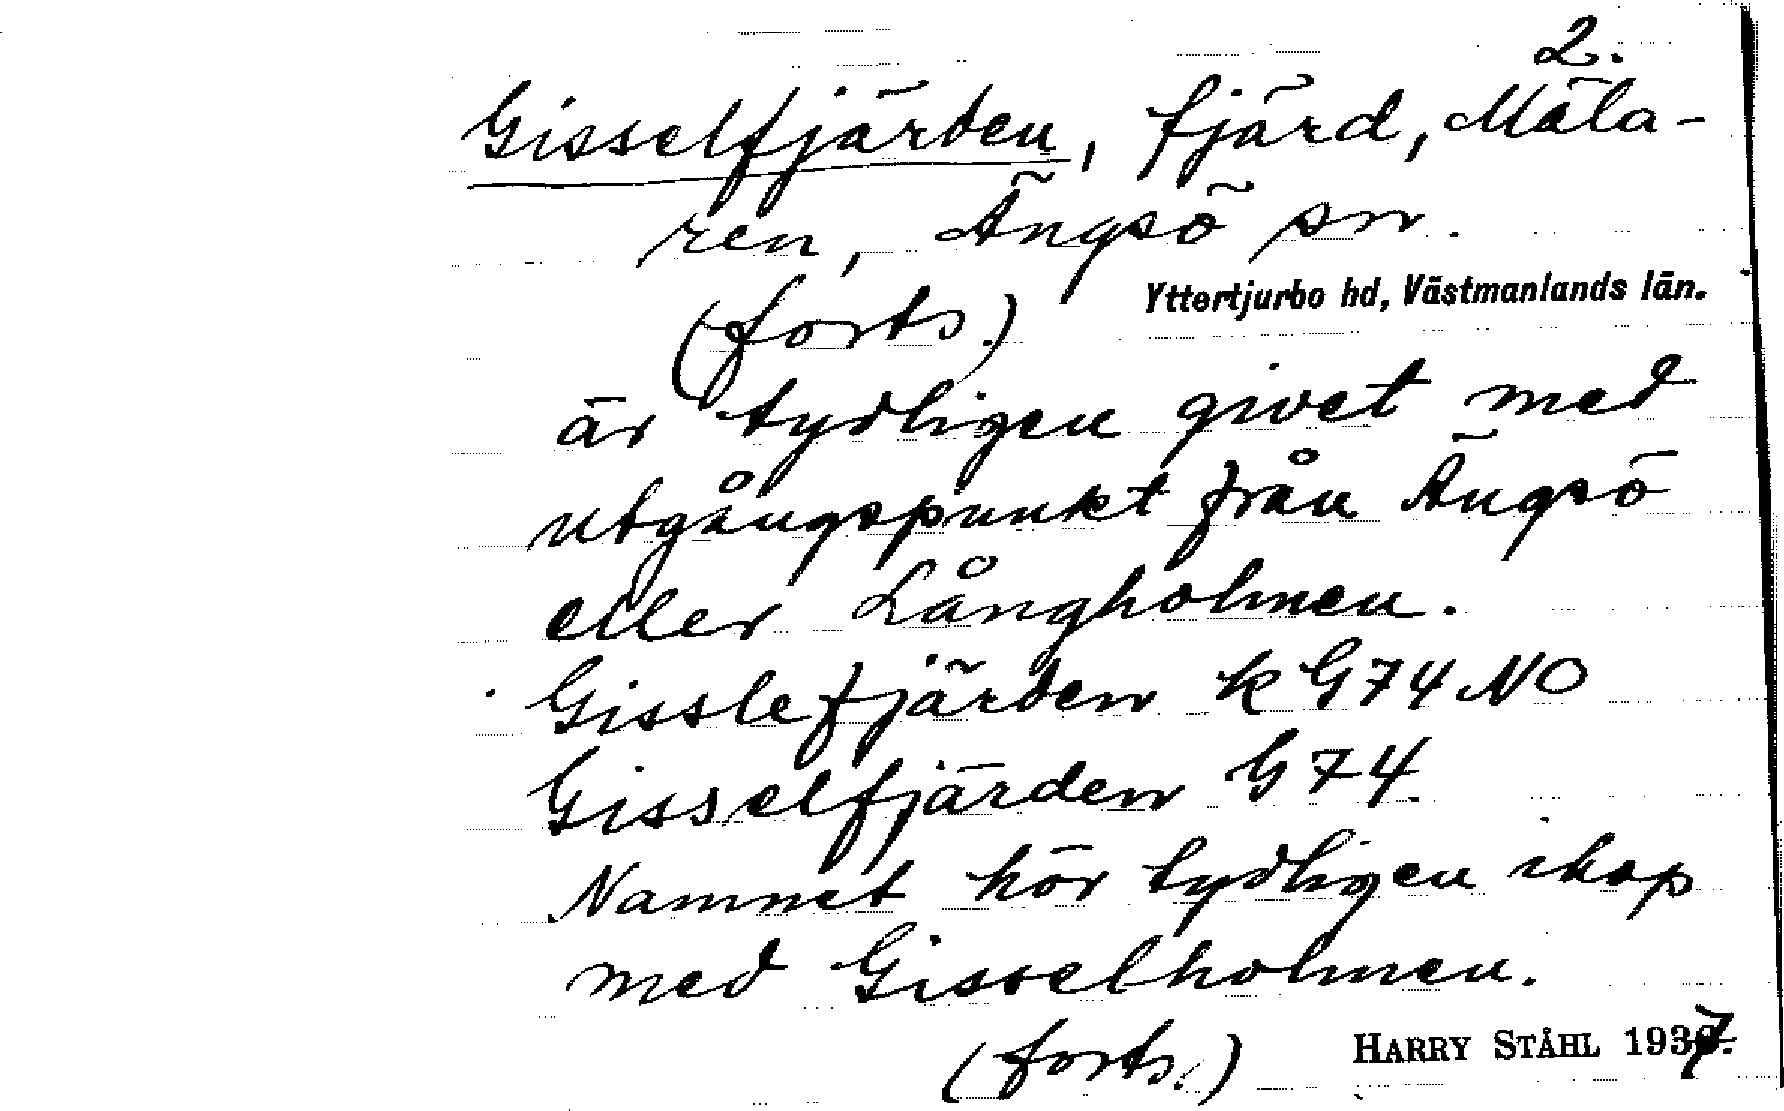 2.
Gisselfjärden, fjärd, Mäla-
ren, Ängsö sn.
Yttertjurbo hd, Västmanlands län.
(forts.)
är tydligen givet med
utgångspunkt från Ängsö
eller Långholmen.
Gisslefjärden k G74 NO
Gisselfjärden G 74
Namnet hör tydligen ihop
med Gisselholmen.
(forts.)
HARRY STÅHL 1937.